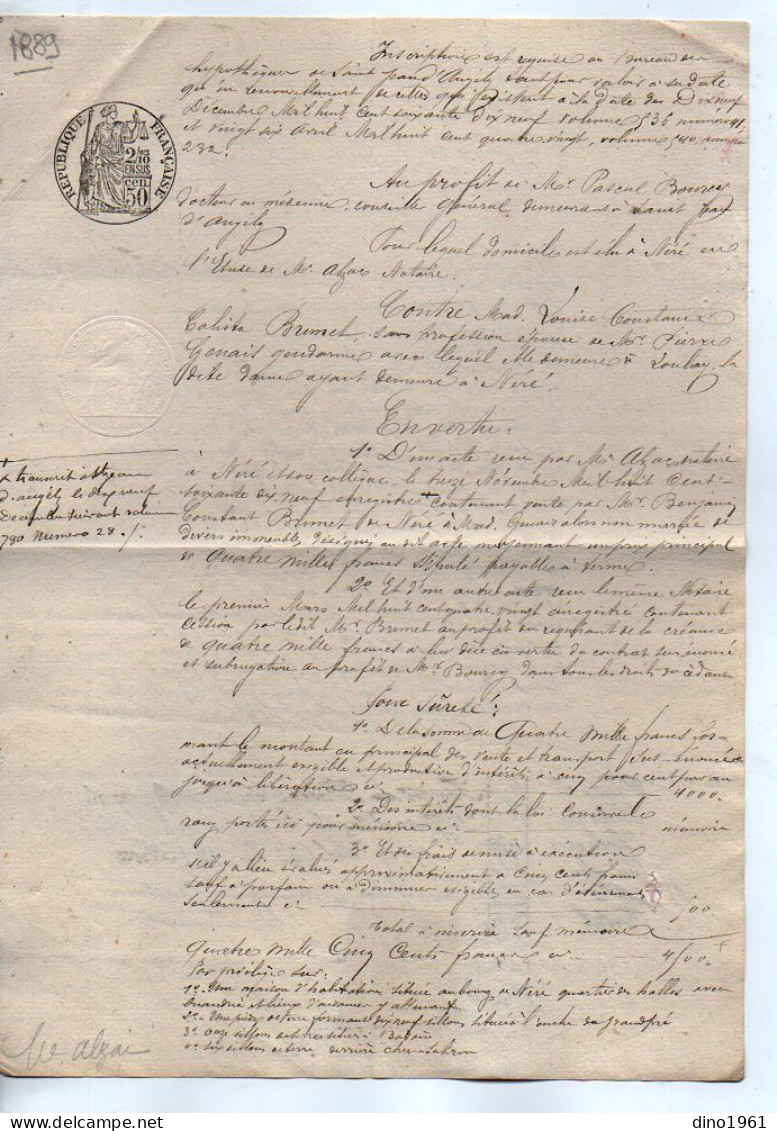 1889
Inscription est requise au Bureau des
hypothèques de Saint Jean d'Angely tant pour valoir à sa date
qu'en renouvellement de celles qui existent à la date des Dix neuf
Décembre Mil huit cent soixante dix neuf volume 536 numéro 41,
et vingt six avril Mil huit cent quatre vingt, volume 540, numéro
232.
RÉPUBLIQUE FRANÇAISE
2/10
EN SUS
50
Au profit de Mr. Pascal Bourcy
docteur en médecine, conseiller général, demeurant à Saint Jean
d'Angely
Pour lequel domicile est élu à Néré en
l'Etude de Me. Alzac Notaire.
Contre Mad. Louise Constance
Calista Brumet, sans profession épouse de Mr. Pierre
Genais gendarme avec lequel elle demeure à Loulay, la
dite dame ayant demeuré à Néré.
En vertu.
1o D'un acte reçu par Me Alzac notaire
à Néré et son collègue, le treize Novembre Mil huit Cent
soixante dix neuf enregistré + contenant vente par Mr. Benjamin
Constant Brumet de Néré à Mad. Genais alors non mariée de
divers immeubles désignés au dit acte moyennant un prix principal
de quatre mille francs stipulé payable à terme.
+ transcrit à St Jean
d'angély le dix neuf
décembre suivant volume
780 numero 28 ./.
2o Et d'un autre acte reçu le même Notaire
le premier Mars Mil huit cent quatre vingt enregistré contenant
cession par ledit Mr. Brumet au profit du requérant de la créance
de quatre mille francs à lui due en vertu du contrat sus énoncé
et subrogation au profit de Mr. Bourcy dans tous les droits du cédant
Pour sûreté:
1o De la somme de Quatre mille francs for-
mant le montant en principal des vente et transport sus-énoncés
actuellement exigible et productive d'intérêts à cinq pour cent par an
jusqu'à libération ci 4000.
2o Des intérêts dont la loi conserve le
rang portés ici pour mémoire ci mémoire
3o Et des frais de mise à exécution
s'il y a lieu évalués approximativement à Cinq cents francs
sauf à parfaire ou à diminuer exigibles en cas d'événement
seulement ci 500
Total à inscrire sauf mémoire
Quatre mille Cinq Cents francs ci 4500f
Par privilège sur:
1o Une maison d'habitation située au bourg de Néré quartier des halles avec
2o Une pièce de terre formant dix neuf sillons située à l'ouche du grand pré
3o Onze sillons de terre situés à
4o six sillons de terre derrière chez
Me. alzac
dino1961